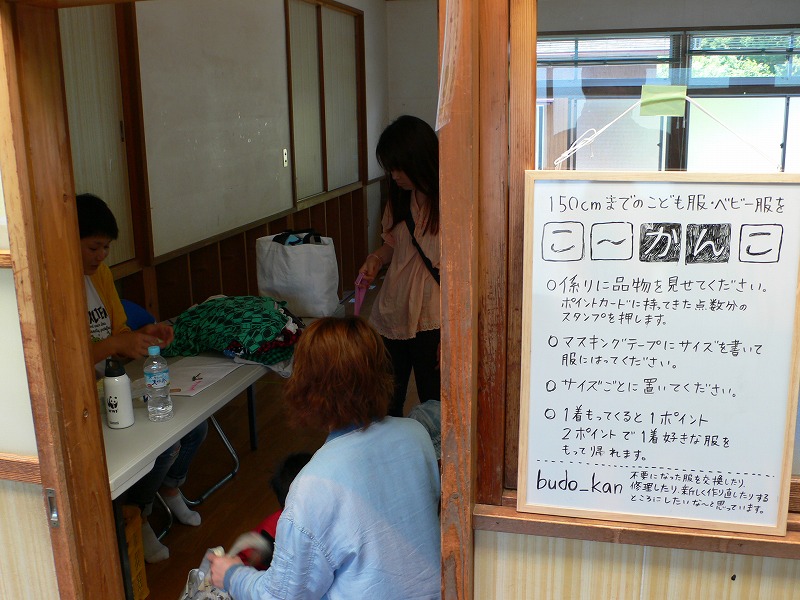 150cmまでのこども服・ベビー服を
こ〜かんこ
○係りに品物を見せてください。
ポイントカードに持ってきた点数分の
スタンプを押します。
○マスキングテープにサイズを書いて
服にはってください。
○サイズごとに置いてください。
○1着もってくると1ポイント
2ポイントで1着好きな服を
もって帰れます。
budo_kan
不要になった服を交換したり、
修理したり、新しく作り直したりする
ところにしたいな〜と思っています。
WWF